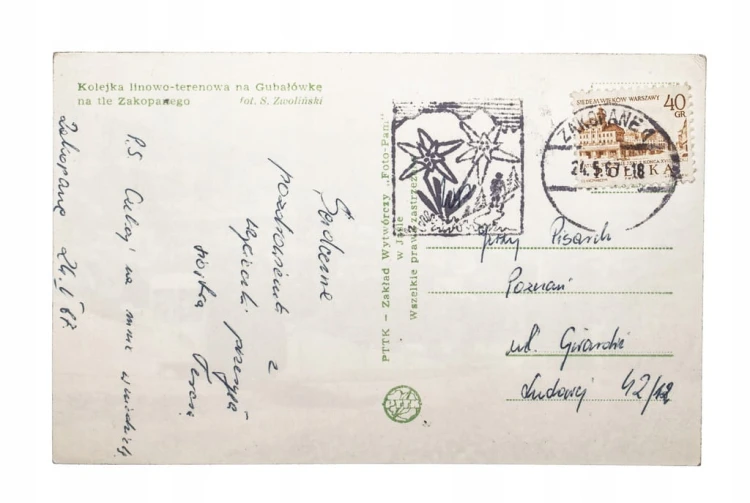 Kolejka linowo-terenowa na Gubałówkę
na tle Zakopanego fot. S. Zwoliński
Zakopane 24.V 67.
Serdeczne
pozdrowienia
z
wycieczki przesyła
siostra
Teresa
P.S. Czekaj na mnie w niedzielę
PTTK – Zakład Wytwórczy „Foto-Pam"
w Jaśle
Wszelkie prawa zastrzeż
SIEDEM WIEKÓW WARSZAWY
40
GR
POLSKA
ZAKOPANE 1
24.5.67-18
Jerzy Pisarek
Poznań
ul. Gwardii
Ludowej 42/12